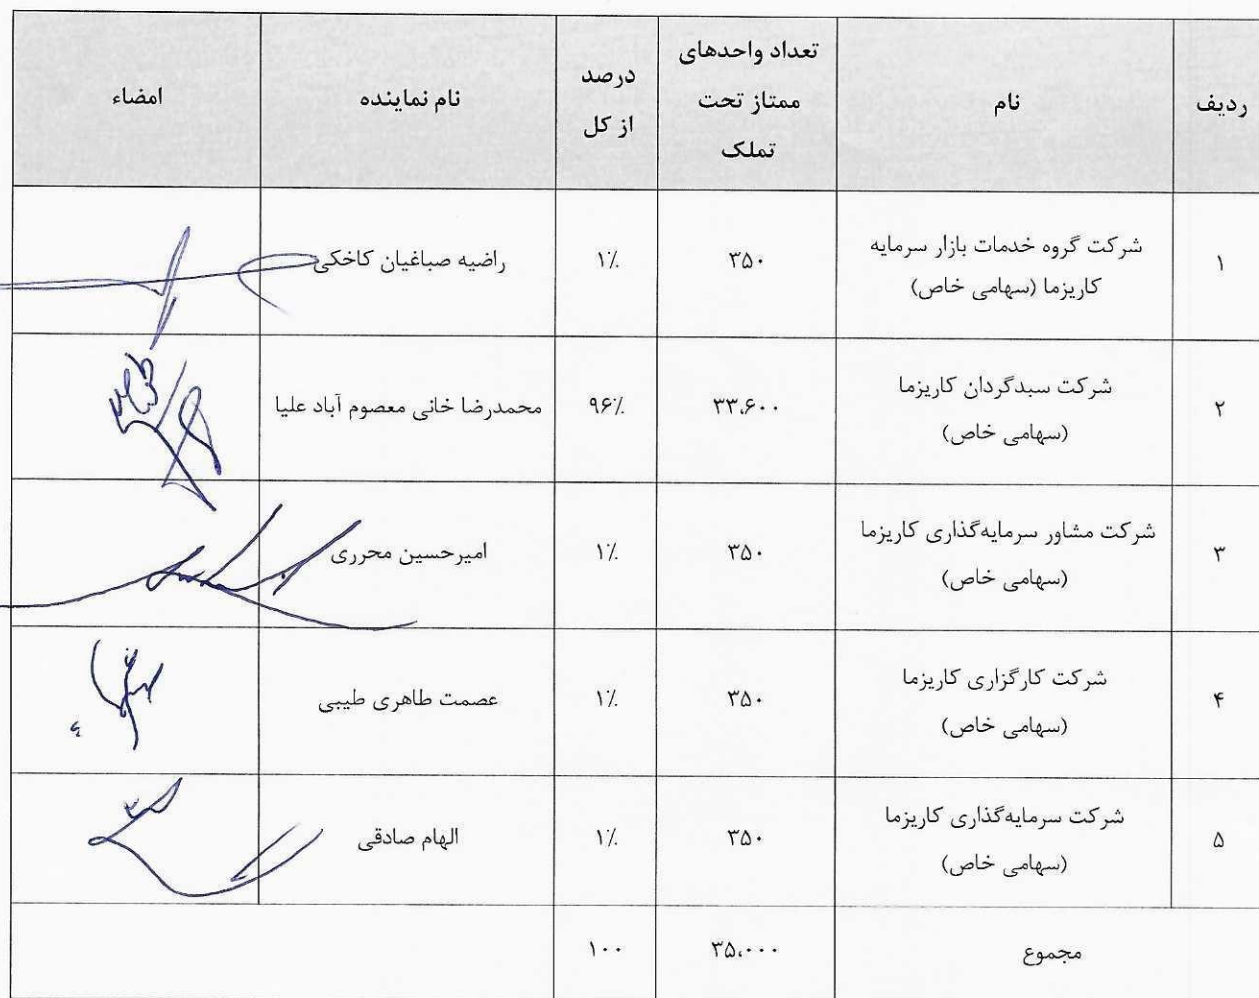 ردیف
نام
تعداد واحدهای
ممتاز تحت
تملک
درصد
از کل
نام نماینده
امضاء
۱
شرکت گروه خدمات بازار سرمایه
کاریزما (سهامی خاص)
۳۵۰
۱٪
راضیه صباغیان کاخکی
۲
شرکت سبدگردان کاریزما
(سهامی خاص)
۳۳،۶۰۰
۹۶٪
محمدرضا خانی معصوم آباد علیا
۳
شرکت مشاور سرمایه‌گذاری کاریزما
(سهامی خاص)
۳۵۰
۱٪
امیرحسین محرری
۴
شرکت کارگزاری کاریزما
(سهامی خاص)
۳۵۰
۱٪
عصمت طاهری طیبی
۵
شرکت سرمایه‌گذاری کاریزما
(سهامی خاص)
۳۵۰
۱٪
الهام صادقی
مجموع
۳۵،۰۰۰
۱۰۰